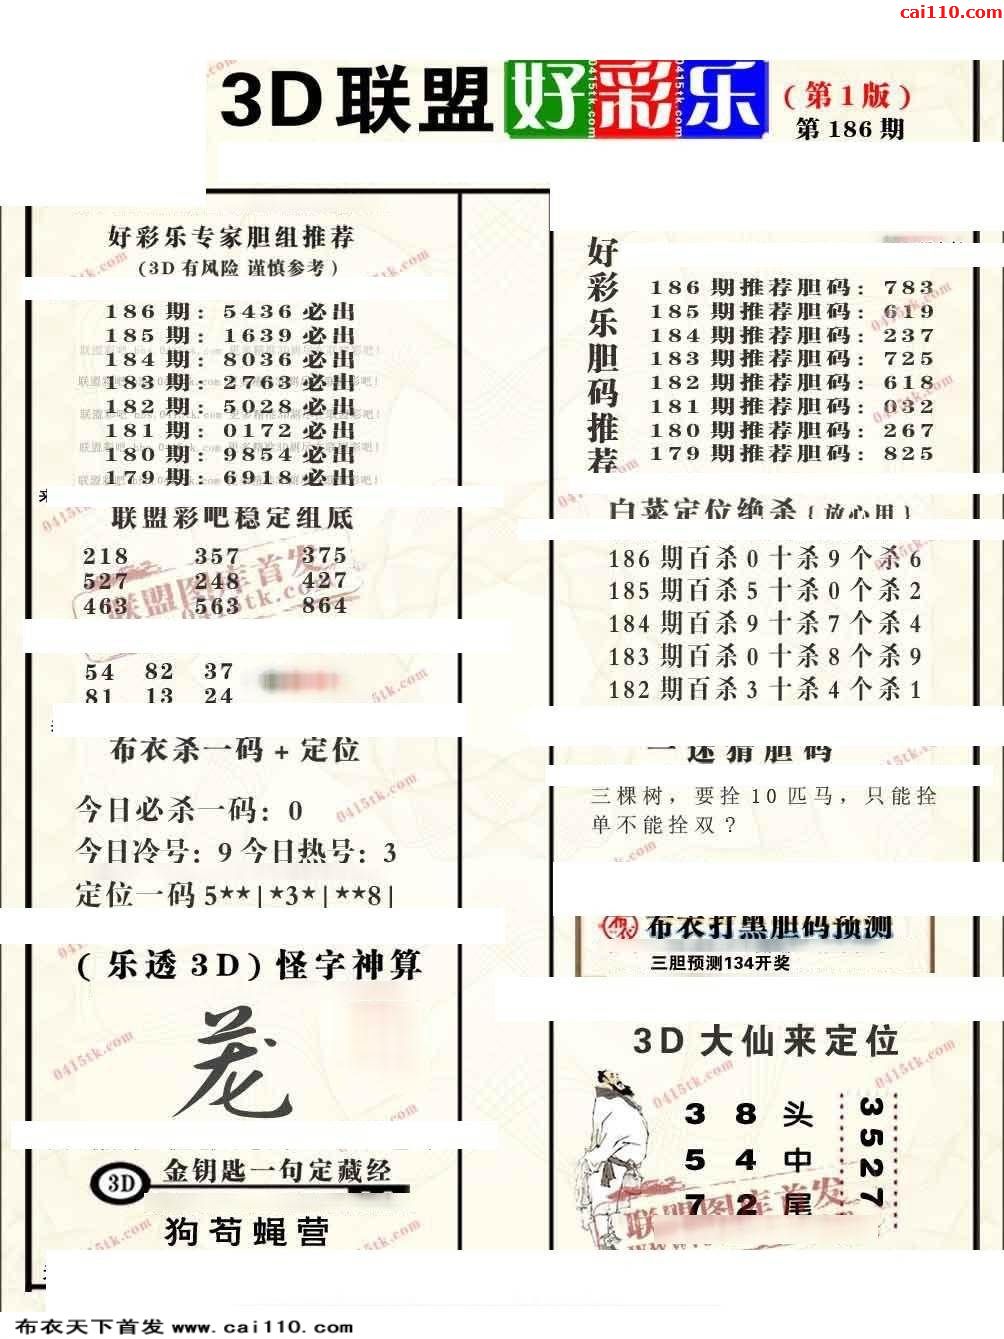 cai110.com
3D联盟好彩乐(第1版)
第186期
好彩乐专家胆组推荐
(3D有风险 谨慎参考)
186期: 5436必出
185期: 1639必出
184期: 8036必出
183期: 2763必出
182期: 5028必出
181期: 0172必出
180期: 9854必出
179期: 6918必出
联盟彩吧稳定组底
218 357 375
527 248 427
463 563 864
54 82 37
81 13 24
布衣杀一码+定位
今日必杀一码: 0
今日冷号: 9 今日热号: 3
定位一码5**|*3*|**8|
(乐透3D)怪字神算
3D 金钥匙一句定藏经
狗苟蝇营
好彩乐胆码推荐
186期推荐胆码: 783
185期推荐胆码: 619
184期推荐胆码: 237
183期推荐胆码: 725
182期推荐胆码: 618
181期推荐胆码: 032
180期推荐胆码: 267
179期推荐胆码: 825
白菜定位绝杀(放心用)
186期百杀0十杀9个杀6
185期百杀5十杀0个杀2
184期百杀9十杀7个杀4
183期百杀0十杀8个杀9
182期百杀3十杀4个杀1
一迷猜胆码
三棵树，要拴10匹马，只能拴
单不能拴双?
布衣打黑胆码预测
三胆预测134开奖
3D大仙来定位
3 8 头
5 4 中
7 2 尾
3527
联盟图库首发
0415tk.com
布衣天下首发 www.cai110.com